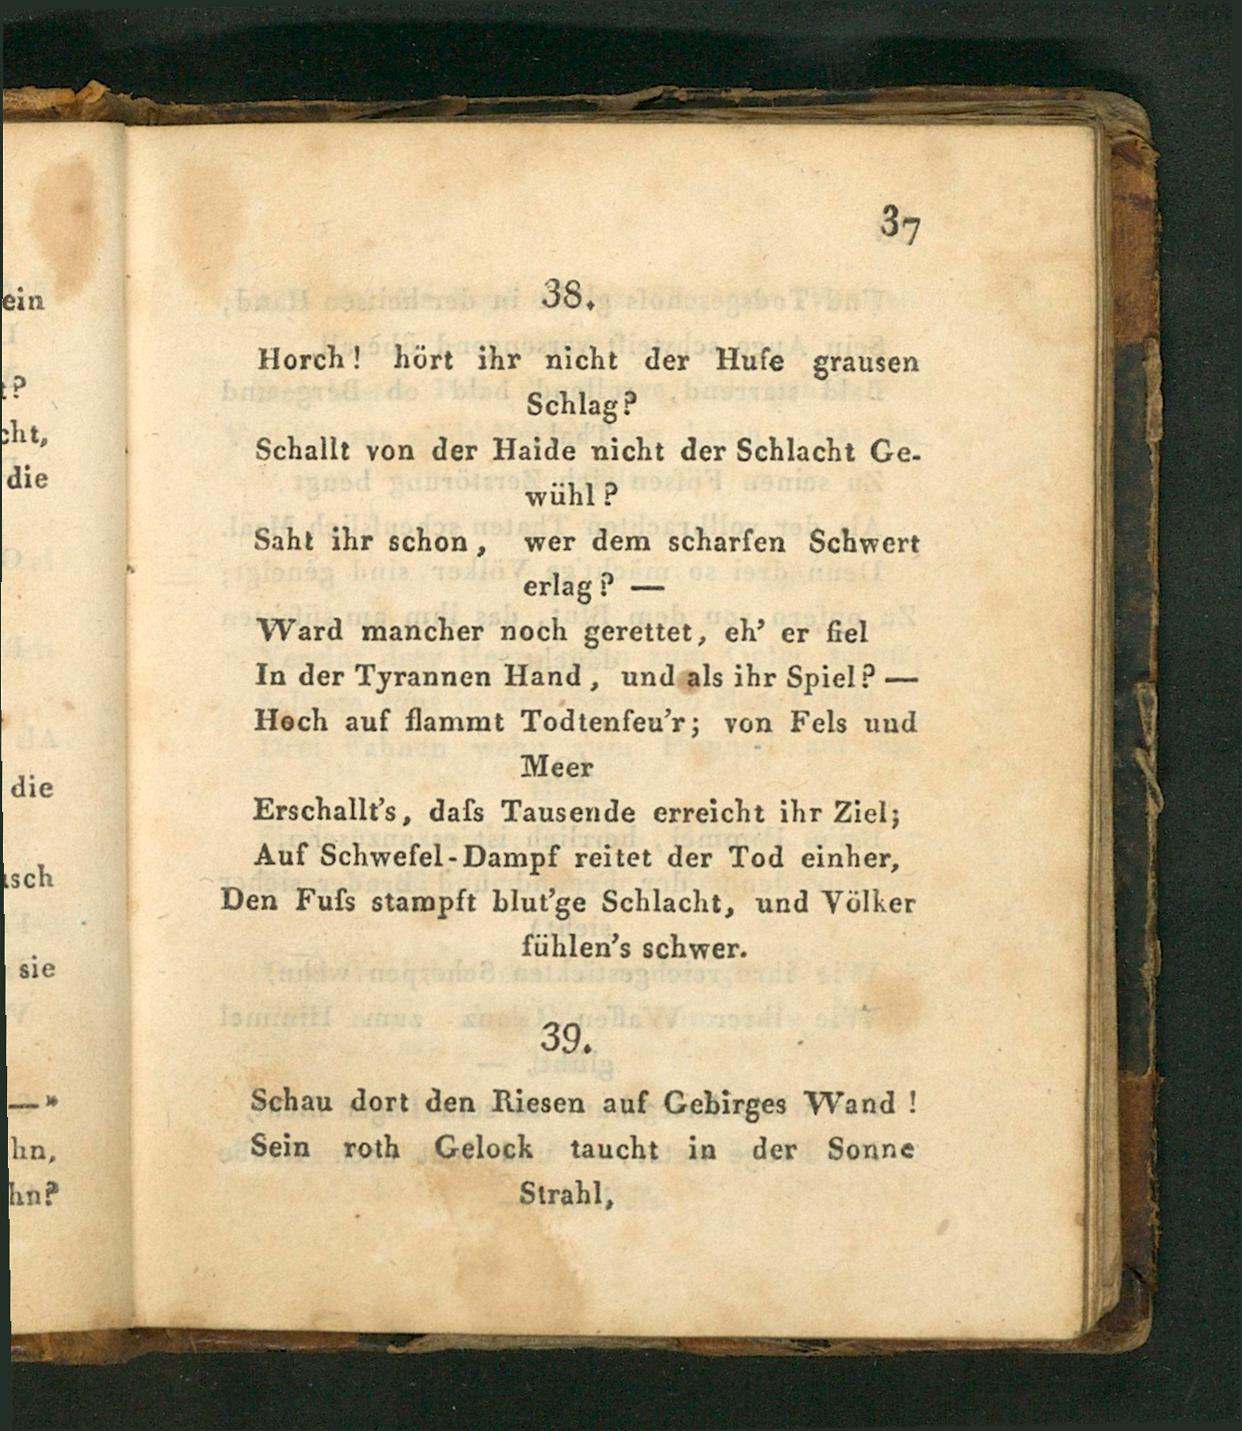 ein
t?
cht,
die
die
sch
sie
—"
hn,
hn?
37
38.
Horch! hört ihr nicht der Hufe grausen
Schlag?
Schallt von der Haide nicht der Schlacht Ge-
wühl?
Saht ihr schon, wer dem scharfen Schwert
erlag? —
Ward mancher noch gerettet, eh' er fiel
In der Tyrannen Hand, und als ihr Spiel? —
Hoch auf flammt Todtenfeu'r; von Fels und
Meer
Erschallt's, daſs Tausende erreicht ihr Ziel;
Auf Schwefel-Dampf reitet der Tod einher,
Den Fuſs stampft blut'ge Schlacht, und Völker
fühlen's schwer.
39.
Schau dort den Riesen auf Gebirges Wand!
Sein roth Gelock taucht in der Sonne
Strahl,